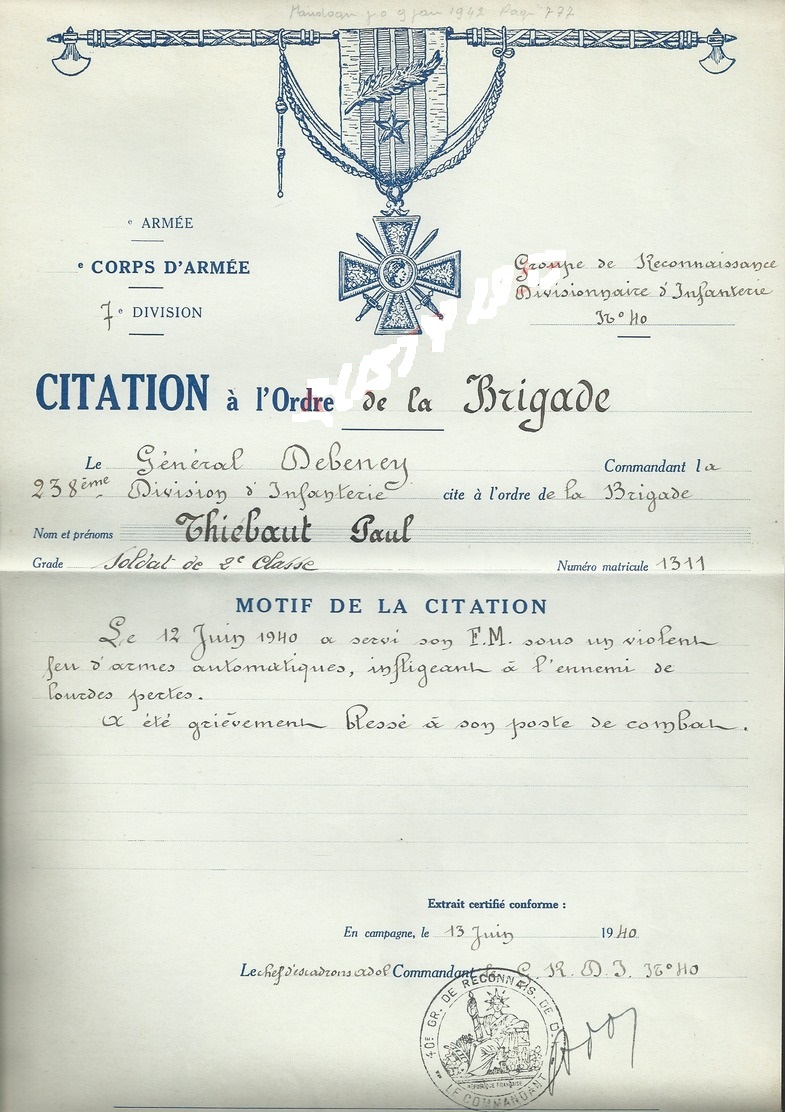 J.O 9 Jan 1942 Page 772
e ARMÉE
e CORPS D'ARMÉE
7e DIVISION
Groupe de Reconnaissance
Divisionnaire d'Infanterie
N° 40
CITATION à l'Ordre de la Brigade
Le Général Debeney Commandant la
238ème Division d'Infanterie cite à l'ordre de la Brigade
Nom et prénoms Thiébaut Paul
Grade Soldat de 2e Classe Numéro matricule 1311
MOTIF DE LA CITATION
Le 12 Juin 1940 a servi son F.M. sous un violent
feu d'armes automatiques, infligeant à l'ennemi de
lourdes pertes.
A été grièvement blessé à son poste de combat.
Extrait certifié conforme :
En campagne, le 13 Juin 1940
Le chef d'escadrons Adol Commandant le G.R.D.I. N° 40
40e GR. DE RECONNAIS. DE D.I.
RÉPUBLIQUE FRANÇAISE
LE COMMANDANT